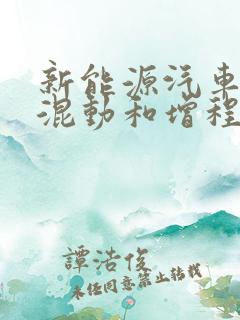 新能源汽车
混动和增程
譚浩俊
未经同意禁止转载